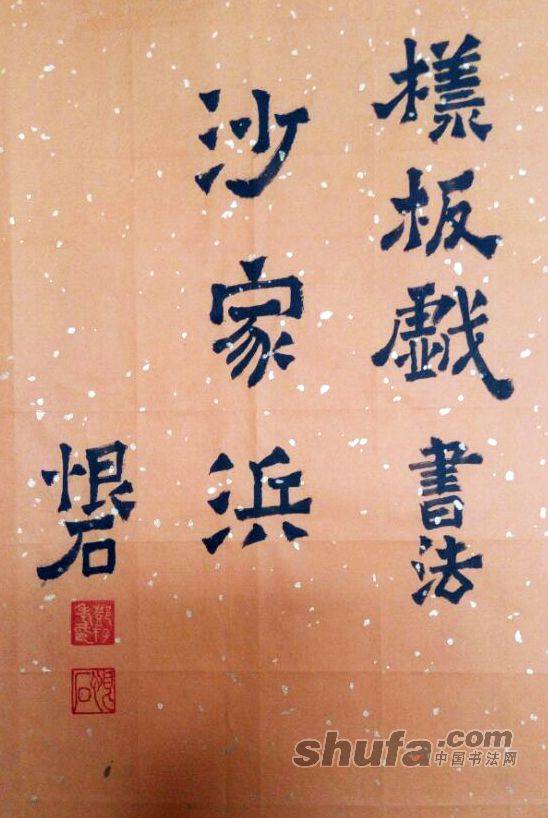 樣板戯書法
沙家浜
恨石
shufa.com
中国书法网